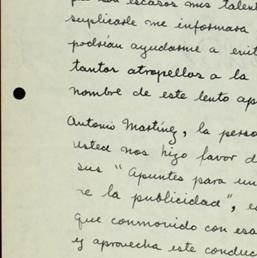 son escasos mis talen
suplicarle me informara
podrían ayudarme a evit
tantos atropellos a la
nombre de este lento ap
Antonio Martínez, la perso
usted nos hizo favor d
sus "Apuntes para un
re la publicidad", e
que conmovido con esa
y aprovecha este conduc